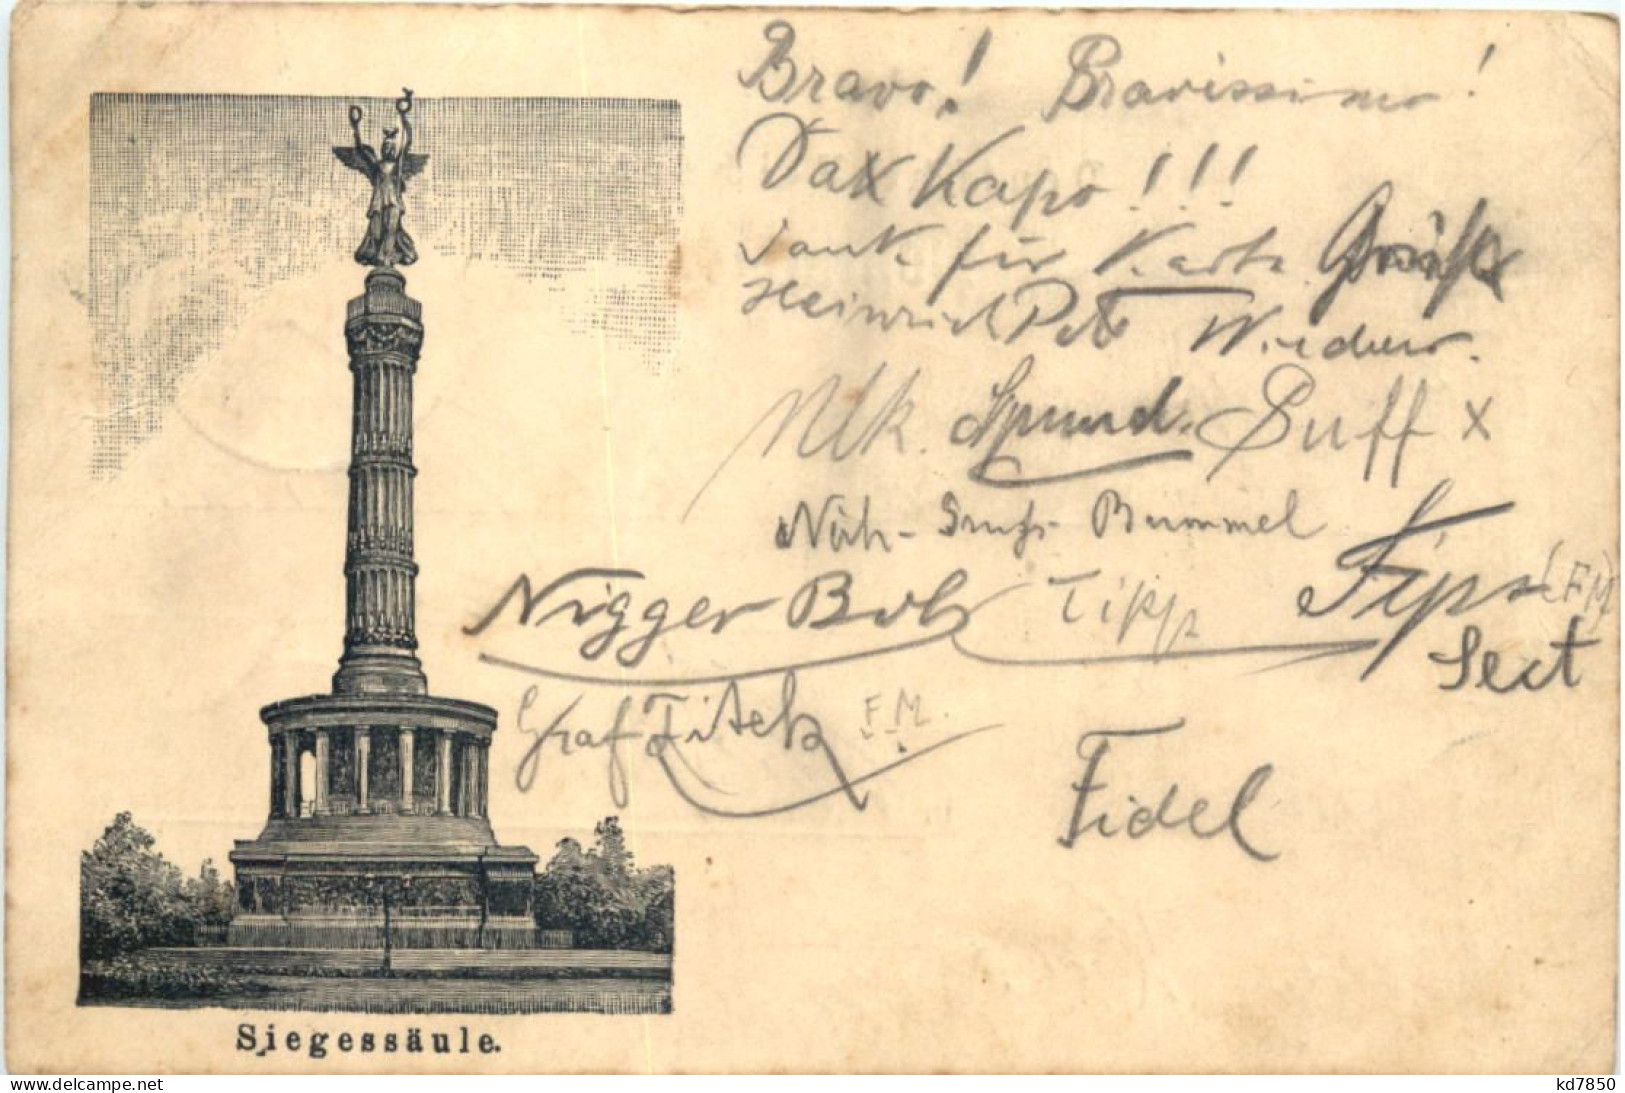 Bravo! Bravissimo!
Dax Kapo!!!
Dank für Karte.
Heinrich
Spund. Suff x
Bummel
Nigger Bob Tipp Fips (FM)
Sect
Graf Fitek F.M.
Fidel
Siegessäule.
www.delcampe.net
kd7850